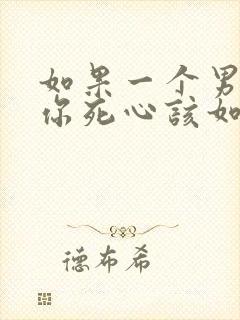 如果一个男
你死心该如
德布希